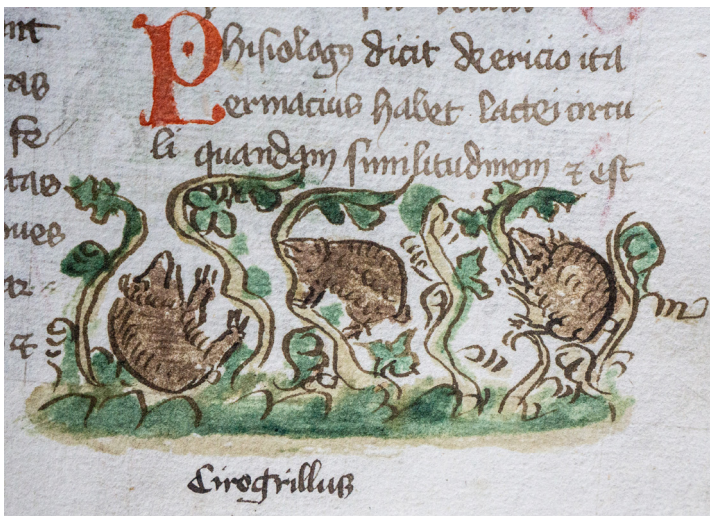 nt
tas
fe
tas
Phisiolog9 dicit de ericio ita
ermacius habet lactei circu
li quandam similitudinem ⁊ est
ques
⁊
m
Cirogrillus